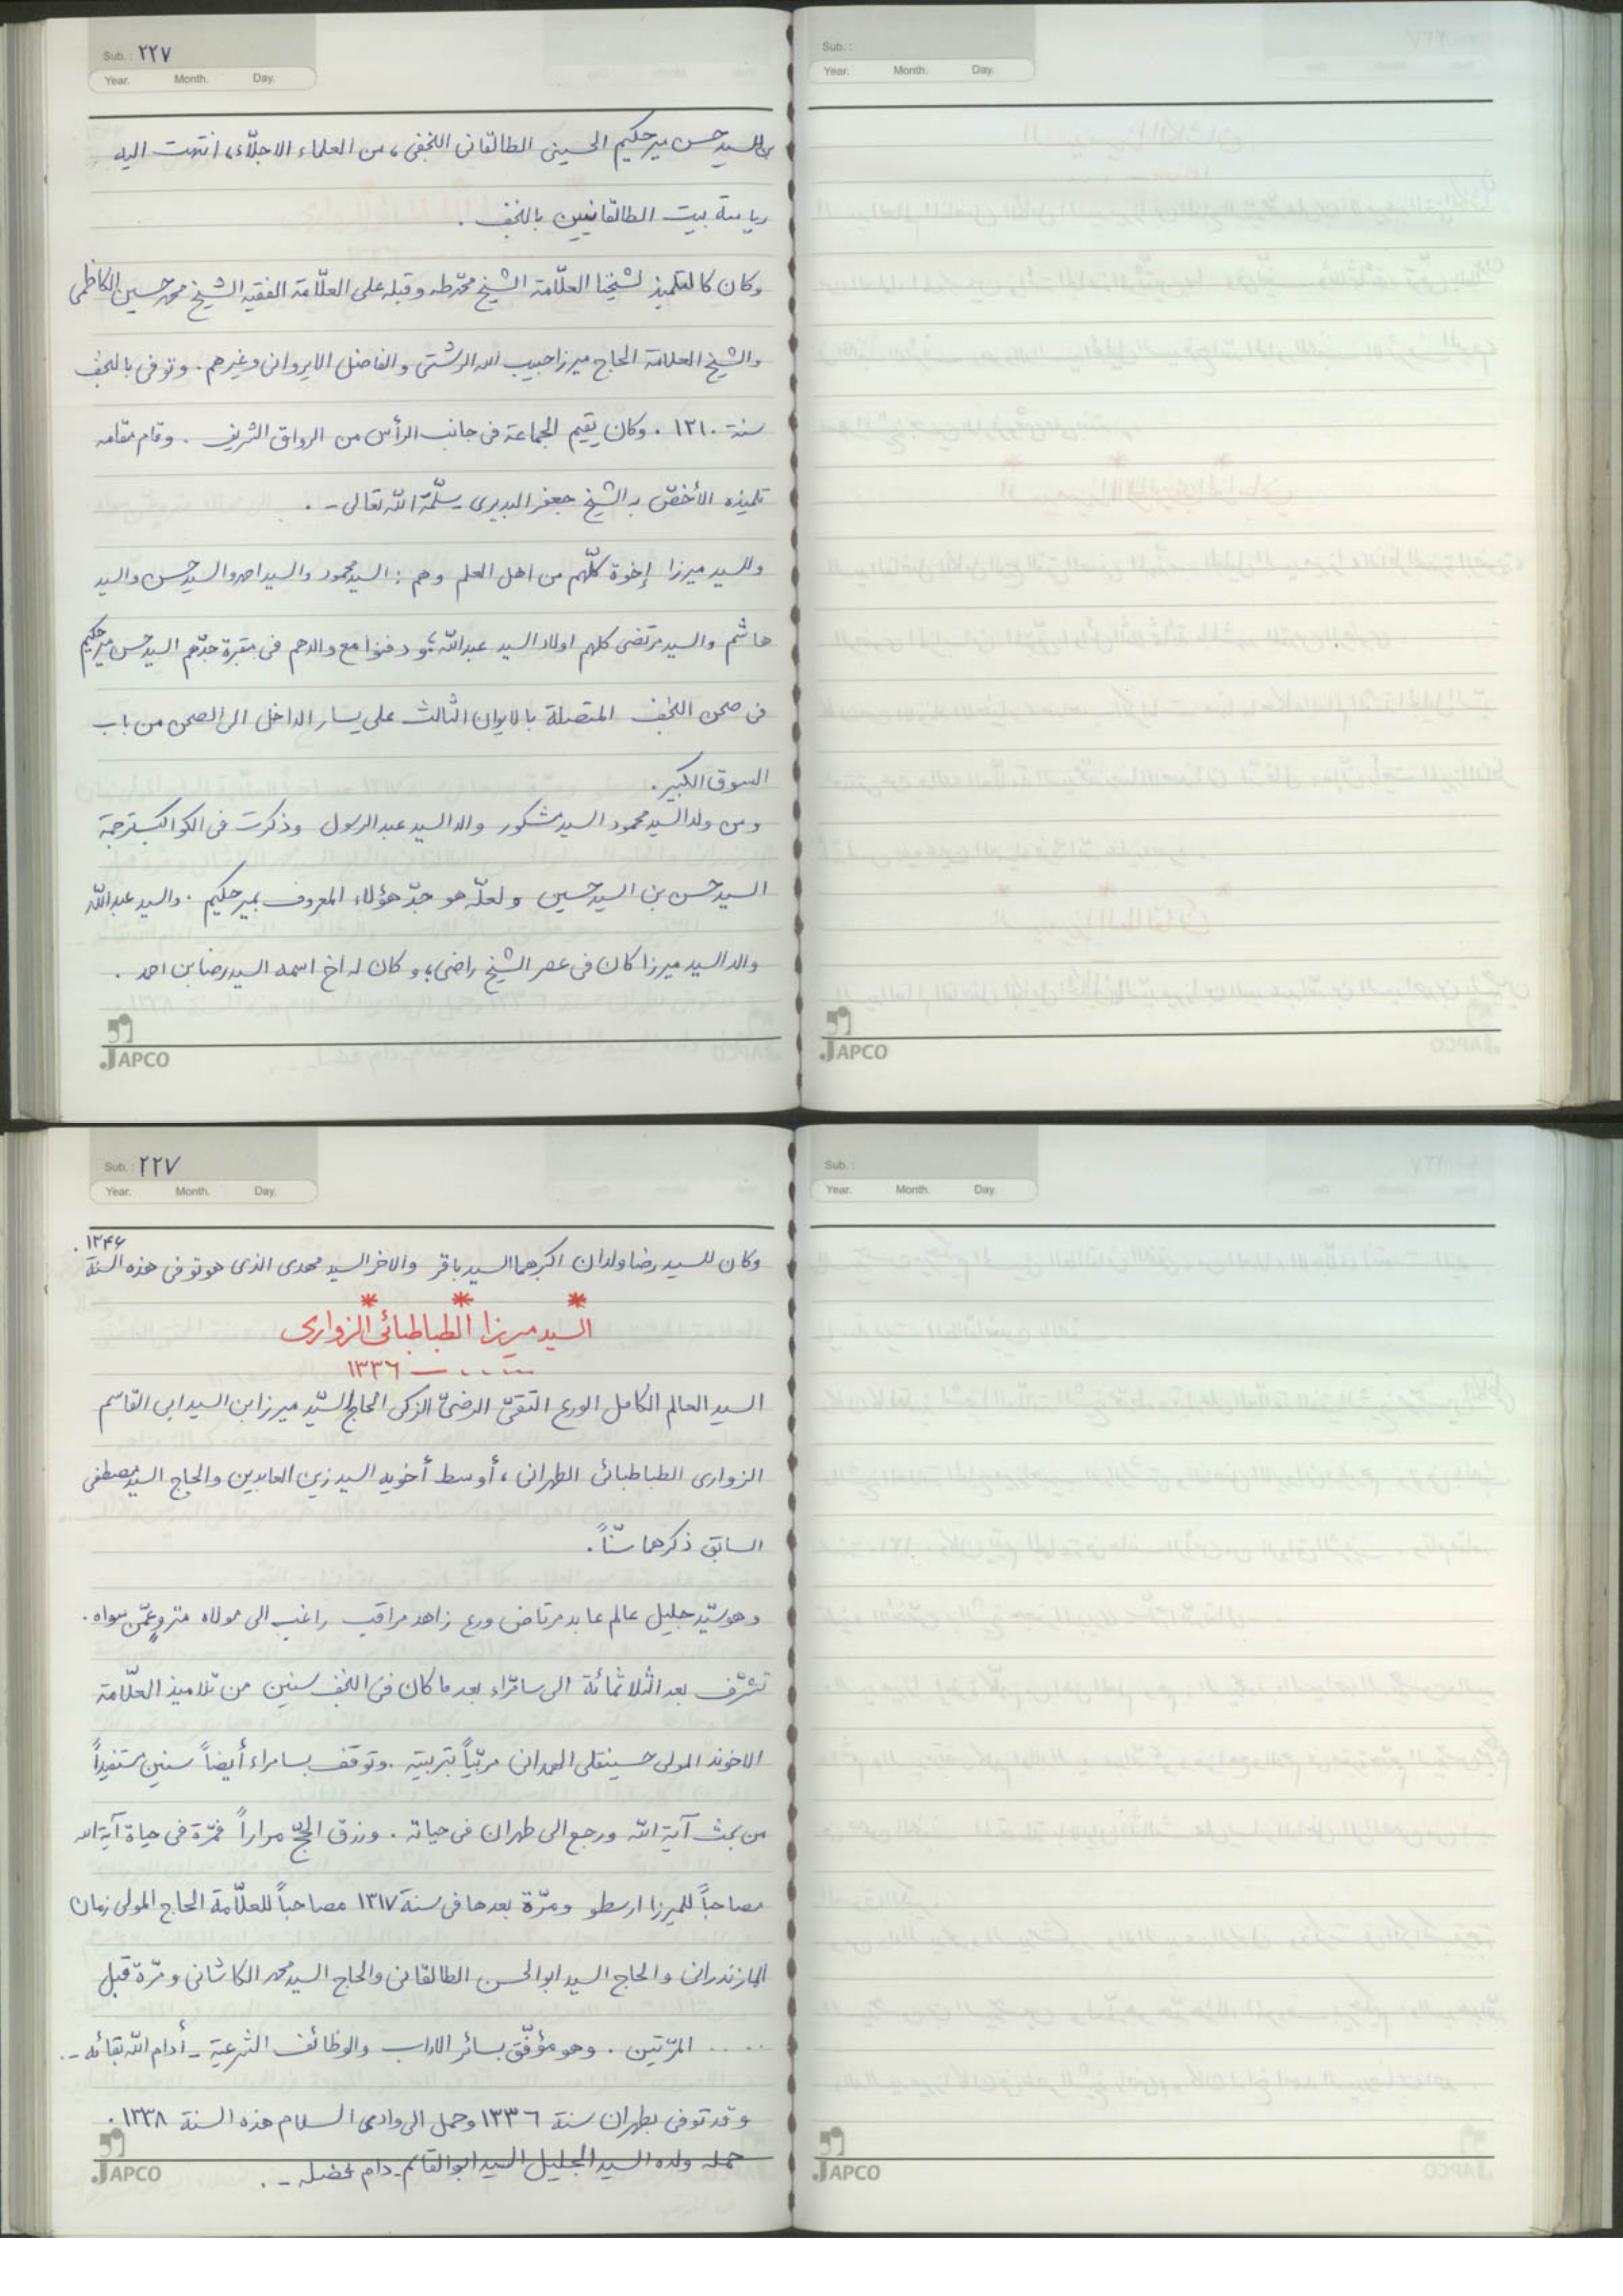 Sub. : ٢٢٧
Year. Month. Day.
بن السيد حسن ميرحكيم الحسينى الطالقانى النجفى، من العلماء الاجلّاء، انتهت اليه
رياسة بيت الطالقانيين بالنجف .
وكان كالتلميذ لشيخنا العلّامة الشيخ محمّد طه وقبله على العلّامة الفقيه الشيخ محمد حسين الكاظمى
والشيخ العلامة الحاج ميرزا حبيب الله الرشتى والفاضل الايروانى وغيرهم . وتوفى بالنجف
سنة ١٣١٠ . وكان يقيم الجماعة فى جانب الرأس من الرواق الشريف . وقام مقامه
تلميذه الأخصّ به الشيخ جعفر البديرى - سلّمه الله تعالى - .
وللسيد ميرزا إخوة كلّهم من اهل العلم وهم : السيد محمود والسيد احمد والسيد حسن والسيد
هاشم والسيد مرتضى كلهم اولاد السيد عبدالله، ودفنوا مع والدهم فى مقبرة جدّهم السيد حسن ميرحكيم
فى صحن النجف المتصلة بالايوان الثالث على يسار الداخل الى الصحن من باب
السوق الكبير .
ومن ولد السيد محمود السيد مشكور والد السيد عبدالرسول وذكرت فى الكواكب ترجمة
السيد حسن بن السيد حسين ولعلّه هو جدّ هؤلاء المعروف بميرحكيم . والسيد عبدالله
والد السيد ميرزا كان فى عصر الشيخ راضى، وكان له اخ اسمه السيد رضا بن احمد .
JAPCO
Sub. :
Year. Month. Day.
JAPCO
Sub. : ٢٢٧
Year. Month. Day.
وكان للسيد رضا ولدان اكبرهما السيد باقر والاخر السيد مهدى الذى هو توفى هذه السنة ١٣۴۶ .
* * *
السيد ميرزا الطباطبائى الزوارى
..... — ١٣٣٦
السيد العالم الكامل الورع التقىّ الرضىّ الزكى الحاج السيّد ميرزا ابن السيد ابى القاسم
الزوارى الطباطبائى الطهرانى، أوسط أخويه السيد زين العابدين والحاج السيد مصطفى
السابق ذكرهما سنّاً .
وهو سيّد جليل عالم عابد مرتاض ورع زاهد مراقب راغب الى مولاه منزوٍ عمّن سواه .
تشرّف بعد الثلاثمائة الى سامرّاء بعد ما كان فى النجف سنين من تلاميذ العلّامة
الاخوند المولى حسينقلى الهمدانى مربّياً بتربيته . وتوقف بسامراء أيضاً سنين مستفيداً
من بحث آية الله ورجع الى طهران فى حياته . ورزق الحجّ مراراً فمرّة فى حياة آية الله
مصاحباً للميرزا ارسطو ومرّة بعدها فى سنة ١٣١٧ مصاحباً للعلّامة الحاج المولى زمان
المازندرانى والحاج السيد ابوالحسن الطالقانى والحاج السيد محمد الكاشانى ومرّة قبل
..... المرّتين . وهو مؤفّق بسائر الاداب والوظائف الشرعية - أدام الله بقائه - .
وقد توفى بطهران سنة ١٣٣٦ وحمل الى وادى السلام هذه السنة ١٣٣٨ .
حمله ولده السيد الجليل السيد ابوالقاسم - دام فضله - .
JAPCO
Sub. :
Year. Month. Day.
JAPCO